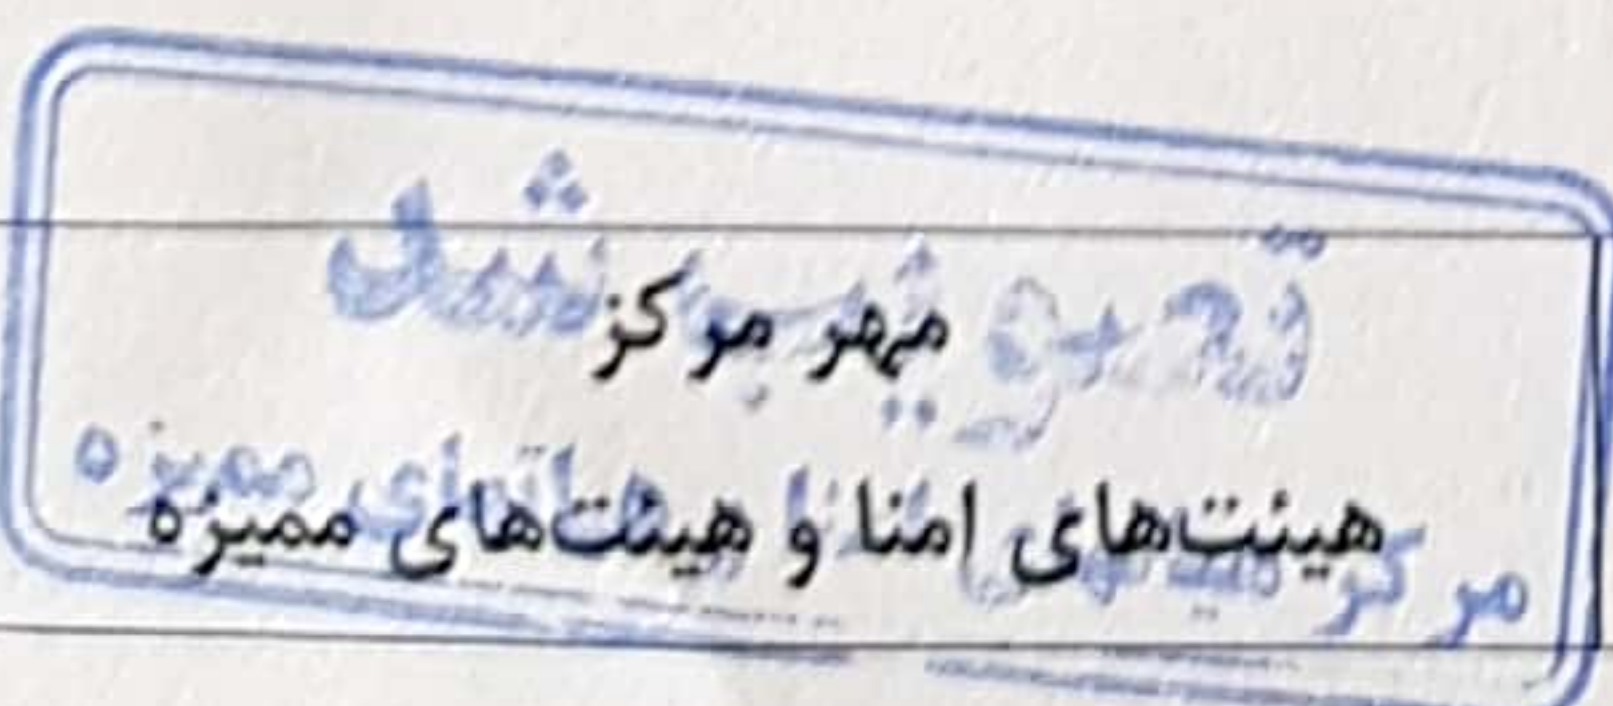 تجویز شد
مهر مرکز
هیئت‌های امنا و هیئت‌های ممیزه
مرکز هیئتهای امنا و هیاتهای ممیزه